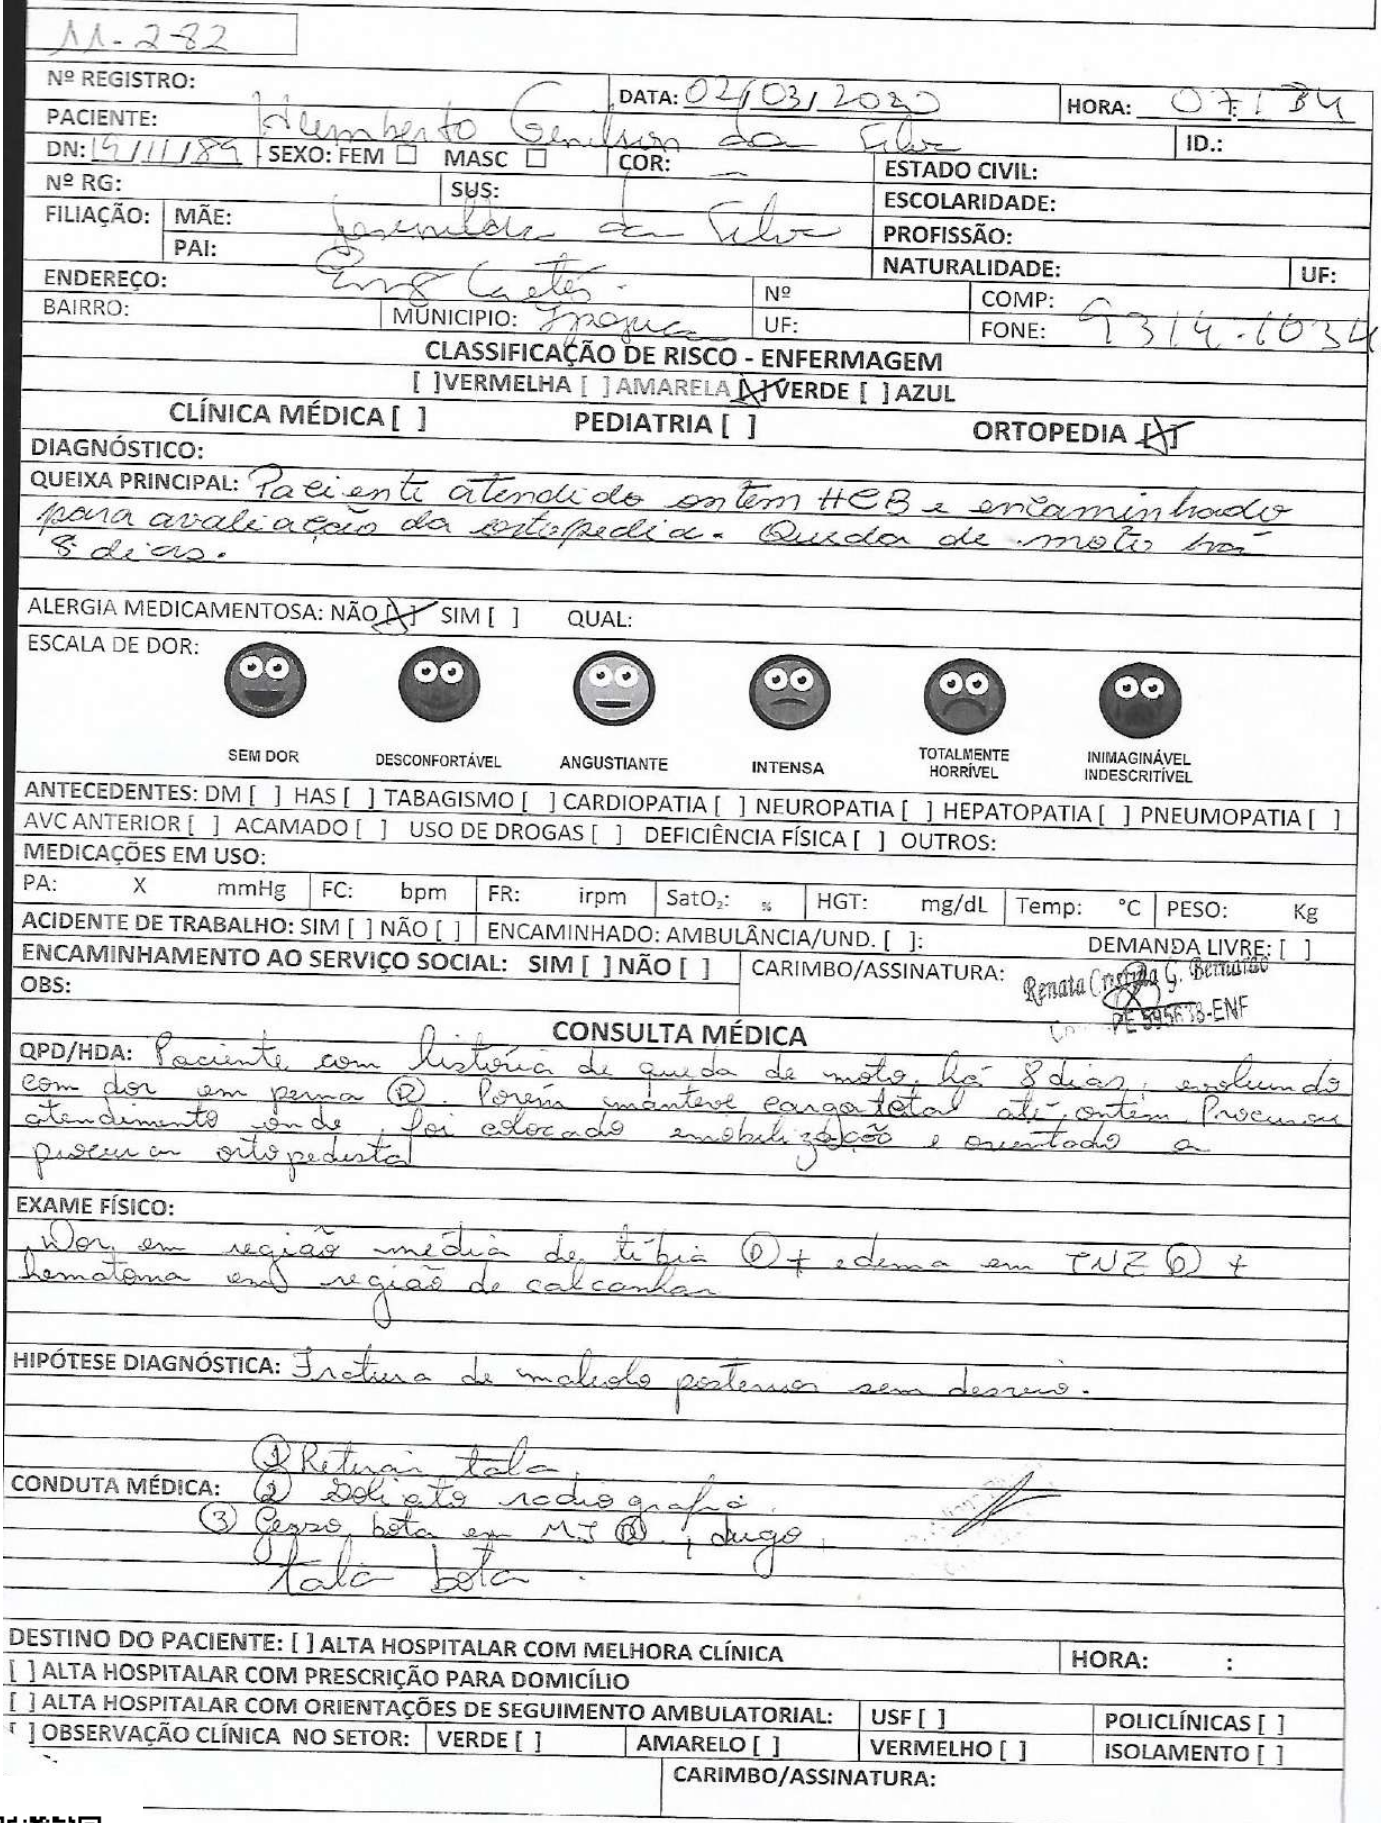 11-282
Nº REGISTRO: DATA: 02/03/2020 HORA: 07:34
PACIENTE: Humberto Genilson da Silva ID.:
DN: 19/11/89 SEXO: FEM ☐ MASC ☐ COR: ESTADO CIVIL:
Nº RG: SUS: ESCOLARIDADE:
FILIAÇÃO: MÃE: Josenilda da Silva PROFISSÃO:
PAI: NATURALIDADE: UF:
ENDEREÇO: Eng Caetés. Nº COMP:
BAIRRO: MUNICIPIO: Ipojuca UF: FONE: 9314-1034
CLASSIFICAÇÃO DE RISCO - ENFERMAGEM
[ ]VERMELHA [ ]AMARELA [X]VERDE [ ]AZUL
CLÍNICA MÉDICA [ ] PEDIATRIA [ ] ORTOPEDIA [X]
DIAGNÓSTICO:
QUEIXA PRINCIPAL: Paciente atendido ontem HCB e encaminhado
para avaliação da ortopedia. Queda de moto há
8 dias.
ALERGIA MEDICAMENTOSA: NÃO [X] SIM [ ] QUAL:
ESCALA DE DOR:
SEM DOR DESCONFORTÁVEL ANGUSTIANTE INTENSA TOTALMENTE HORRÍVEL INIMAGINÁVEL INDESCRITÍVEL
ANTECEDENTES: DM [ ] HAS [ ] TABAGISMO [ ] CARDIOPATIA [ ] NEUROPATIA [ ] HEPATOPATIA [ ] PNEUMOPATIA [ ]
AVC ANTERIOR [ ] ACAMADO [ ] USO DE DROGAS [ ] DEFICIÊNCIA FÍSICA [ ] OUTROS:
MEDICAÇÕES EM USO:
PA: X mmHg FC: bpm FR: irpm SatO₂: % HGT: mg/dL Temp: °C PESO: Kg
ACIDENTE DE TRABALHO: SIM [ ] NÃO [ ] ENCAMINHADO: AMBULÂNCIA/UND. [ ]: DEMANDA LIVRE: [ ]
ENCAMINHAMENTO AO SERVIÇO SOCIAL: SIM [ ] NÃO [ ] CARIMBO/ASSINATURA: Renata G. Bernardo
OBS: -ENF
CONSULTA MÉDICA
QPD/HDA: Paciente com história de queda de moto, há 8 dias, evoluindo
com dor em perna (D). Porém manteve carga total até ontem. Procurou
atendimento onde foi colocado imobilização e orientado a
procurar ortopedista
EXAME FÍSICO:
Dor em região média de tíbia (D) + edema em TNZ (D) +
hematoma em região de calcanhar
HIPÓTESE DIAGNÓSTICA: Fratura de maléolo posterior sem desvio.
① Retirar tala
CONDUTA MÉDICA: ② Solicito radiografia.
③ Gesso bota em MI (D), digo,
tala bota.
DESTINO DO PACIENTE: [ ] ALTA HOSPITALAR COM MELHORA CLÍNICA HORA: :
[ ] ALTA HOSPITALAR COM PRESCRIÇÃO PARA DOMICÍLIO
[ ] ALTA HOSPITALAR COM ORIENTAÇÕES DE SEGUIMENTO AMBULATORIAL: USF [ ] POLICLÍNICAS [ ]
[ ] OBSERVAÇÃO CLÍNICA NO SETOR: VERDE [ ] AMARELO [ ] VERMELHO [ ] ISOLAMENTO [ ]
CARIMBO/ASSINATURA: